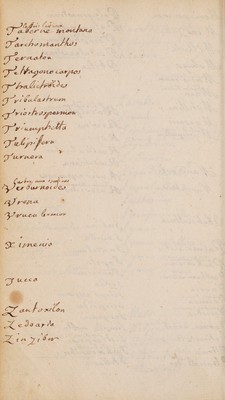 Taberne montana
Tarchonanthos
Ternatea
Tetragonocarpos
Thalictroides
Tribulastrum
Triosteospermum
Triumphetta
Tulipifera
Turnera
Verburnoides
Urena
Ximenia
Yucca
Zantoxilon
Zedoaria
Zinziber